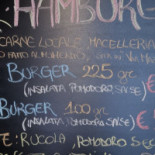 HAMBUR
CARNE LOCALE, MACELLERIA
BURGER 225 gr €
(INSALATA POMODORO SALSE)
BURGER 100 gr €
(INSALATA POMODORO SALSE)
E: RUCOLA, POMODORO SECC